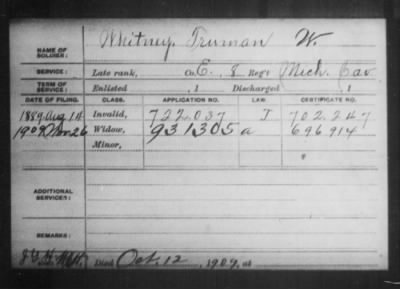 NAME OF SOLDIER: Whitney, Truman W.
SERVICE: Late rank, Co. E, 8 Reg't Mich. Cav
TERM OF SERVICE: Enlisted , 1 Discharged , 1
DATE OF FILING. CLASS. APPLICATION NO. LAW. CERTIFICATE NO.
1889 Aug 14 Invalid, 722.037 J 702.247
1909 Nov 26 Widow, 931305 a 696914
Minor,
ADDITIONAL SERVICES:
REMARKS:
Died Oct. 12, 1909, at